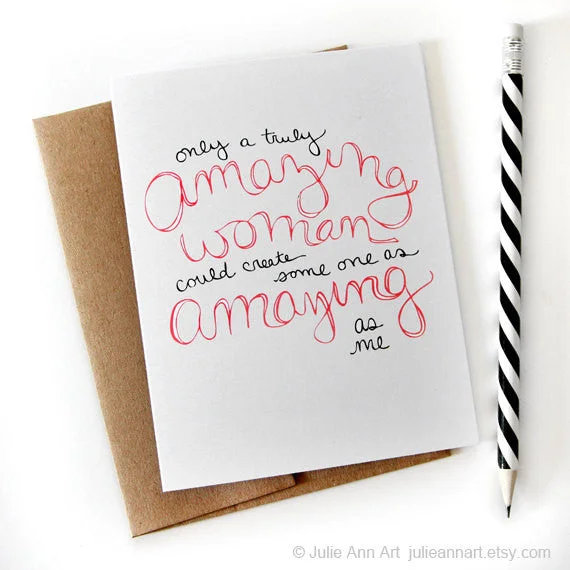 only a truly
amazing
woman
could create some one as
amazing
as
me
© Julie Ann Art julieannart.etsy.com